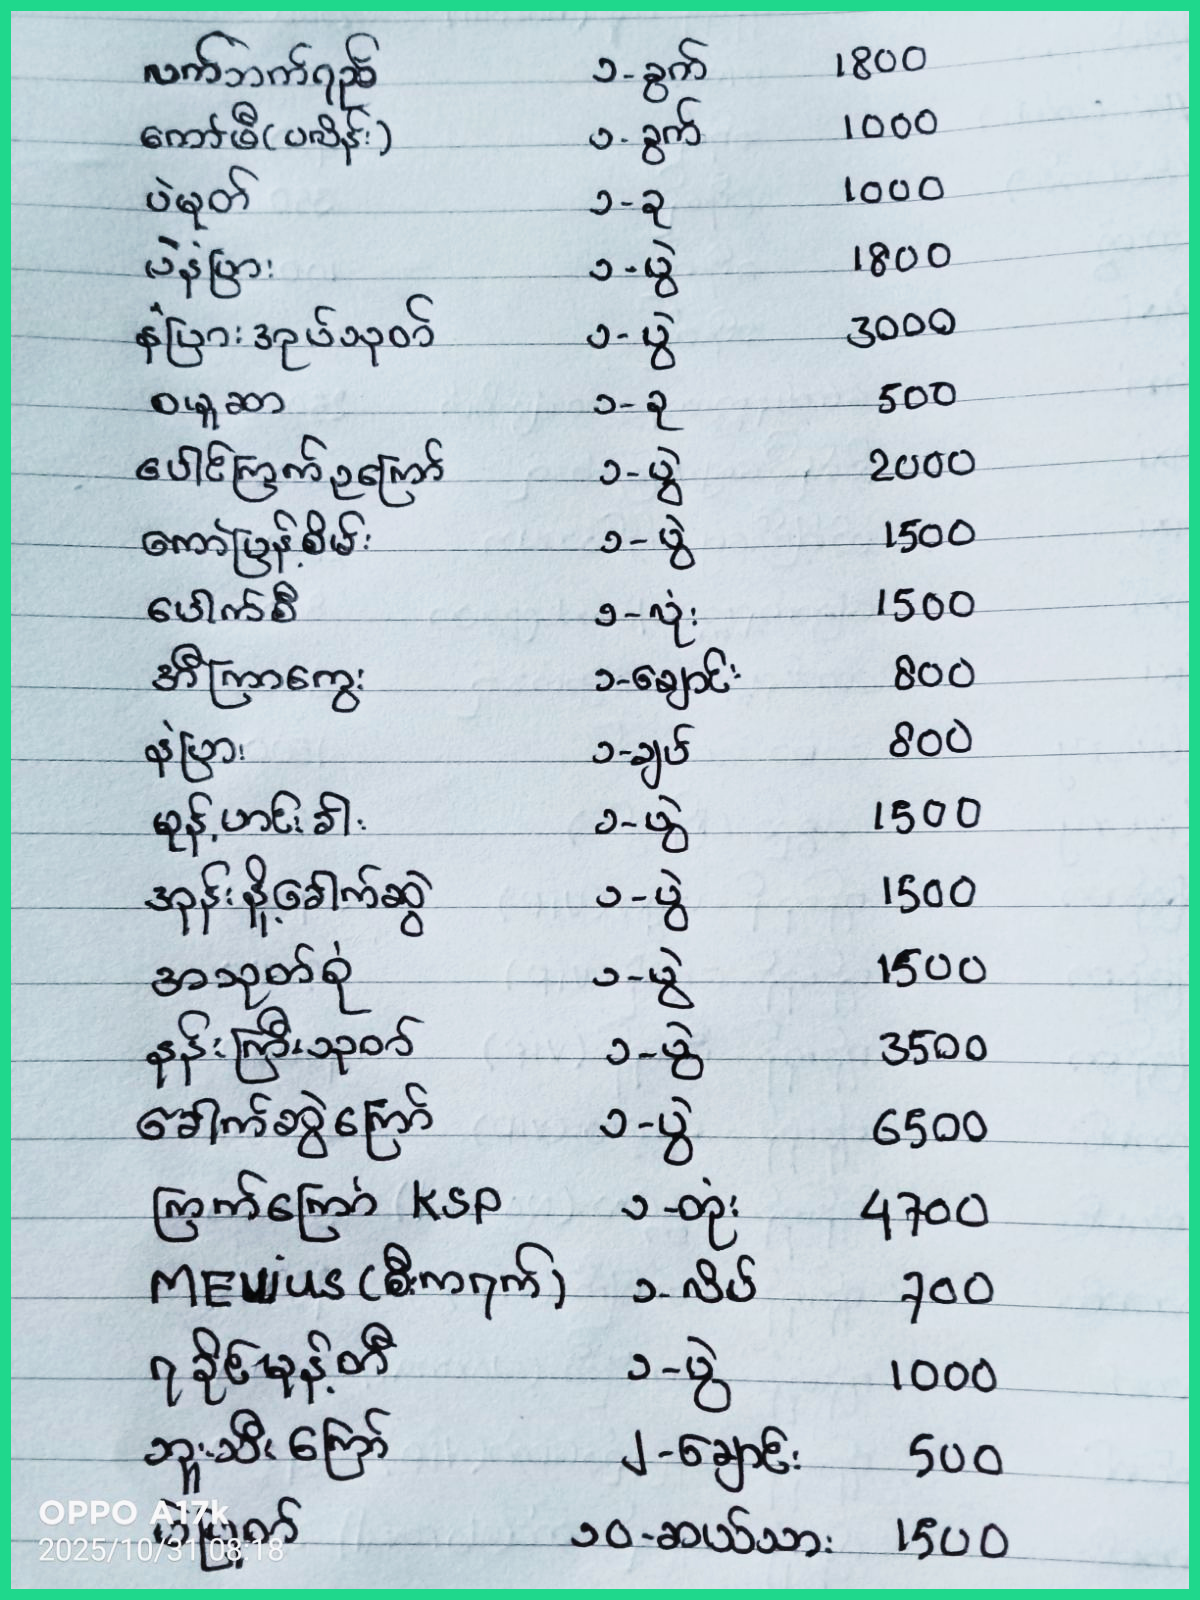 လက်ဘက်ရည် ၁-ခွက် 1800
ကော်ဖီ(ပလိန်း) ၁-ခွက် 1000
ပဲမုတ် ၁-ခု 1000
ပဲနံပြား ၁-ပွဲ 1800
နံပြားအုပ်သုတ် ၁-ပွဲ 3000
စမူဆာ ၁-ခု 500
ပေါင်ကြက်ဥကြော် ၁-ပွဲ 2000
ကော်ပြန့်စိမ်း ၁-ပွဲ 1500
ပေါက်စီ ၁-လုံး 1500
အီကြာကွေး ၁-ချောင်း 800
နံပြား ၁-ချပ် 800
မုန့်ဟင်းခါး ၁-ပွဲ 1500
အုန်းနို့ခေါက်ဆွဲ ၁-ပွဲ 1500
အသုတ်စုံ ၁-ပွဲ 1500
နန်းကြီးသုတ် ၁-ပွဲ 3500
ခေါက်ဆွဲကြော် ၁-ပွဲ 6500
ကြက်ကြော် KSP ၁-တုံး 4700
MEVIUS (စီးကရက်) ၁-လိပ် 700
ရခိုင်မုန့်တီ ၁-ပွဲ 1000
ဘူးသီးကြော် ၂-ချောင်း 500
ပဲပြုတ် ၁၀-ဆယ်သား 1500
OPPO A17k
2025/10/31 08:18